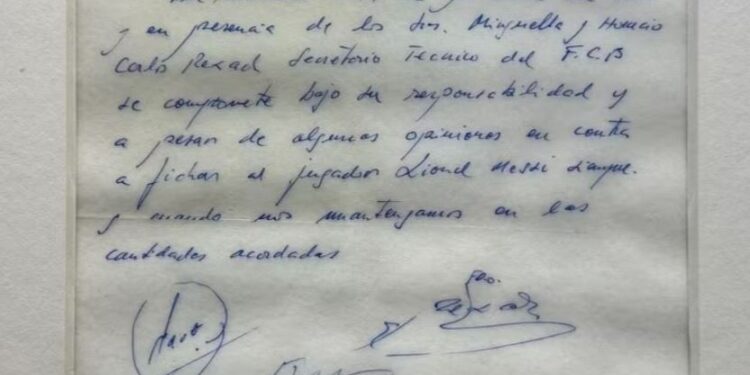 y en presencia de los Srs. Minguella y Horacio
Carles Rexach Secretario Técnico del F.C.B
se compromete bajo su responsabilidad y
a pesar de algunas opiniones en contra
a fichar al jugador Lionel Messi siempre
y cuando nos mantengamos en las
cantidades acordadas